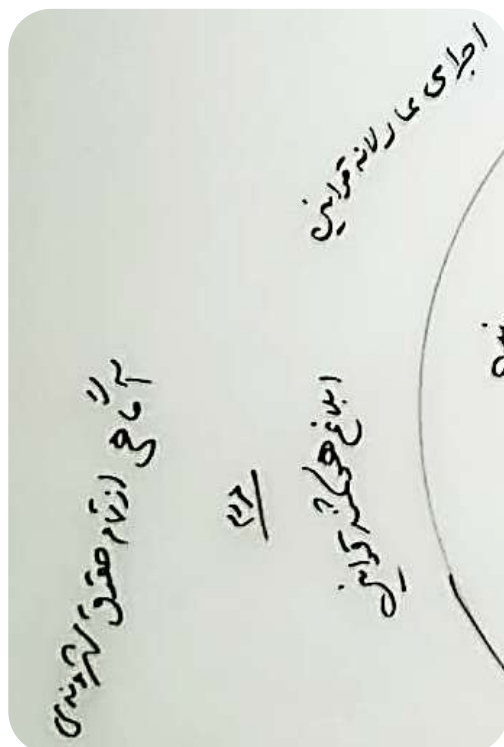 اجرای عادلانه قوانین
ابلاغ قوانین
مردم
آگاهی از تمام حقوق شهروندی